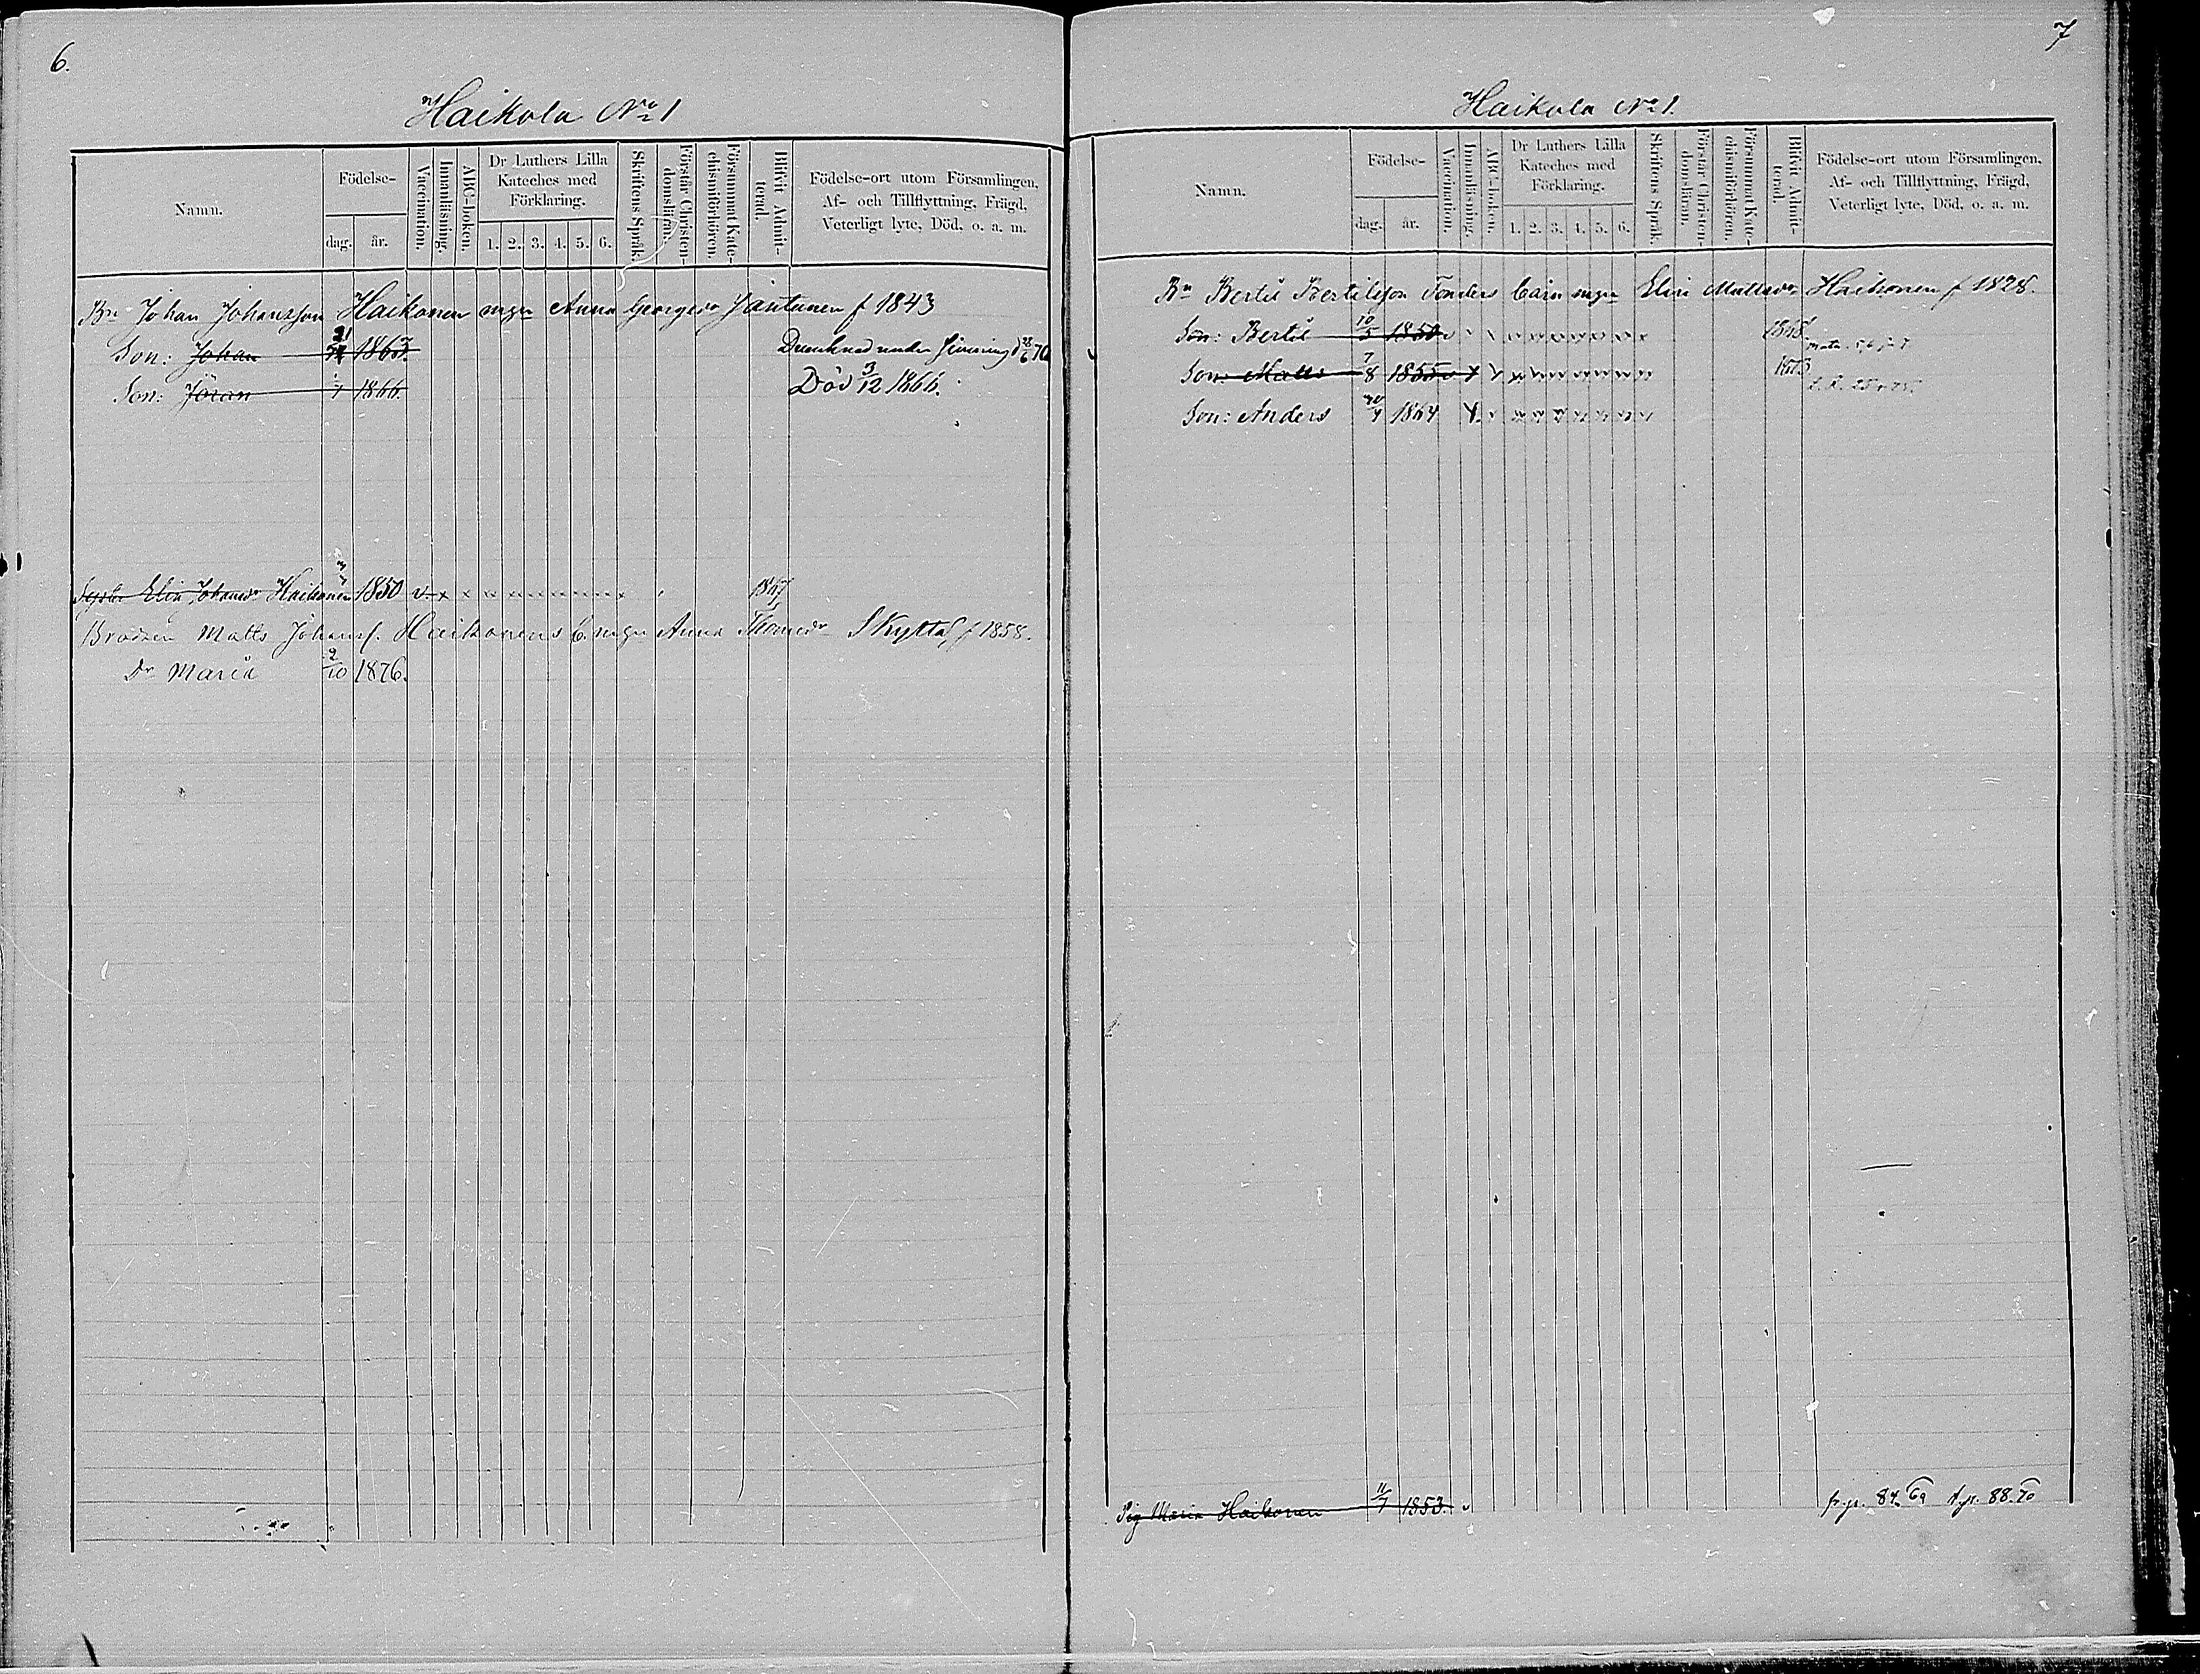 6.
Haikola No 1
Namn.
Födelse-
dag.
år.
Vaccination.
Innanläsning.
ABC-boken.
Dr Luthers Lilla
Kateches med
Förklaring.
1. 2. 3. 4. 5. 6.
Skriftens Språk.
Förstår Christen-
domslären.
Försummat Kate-
chismiförhören.
Blifvit Admit-
terad.
Födelse-ort utom Församlingen,
Af- och Tillflyttning, Frägd,
Veterligt lyte, Död, o. a. m.
Bn Johan Johansson Haikonen mgn Anna Georgsdr Jäntunen f 1843
Son: Johan 21 1863 Drunknad under simning d 28/6 76
Son: Jöran 1866. Död 3/12 1866.
Syster Elin Johansdr Haikonen 1850 v x 1867
Brodren Matts Johans. Haikonens b. mgn Anna Thomasdr Skyttä f 1858.
Dr Maria 2/10 1876.
7
Haikola No 1.
Namn.
Födelse-
dag.
år.
Vaccination.
Innanläsning.
ABC-boken.
Dr Luthers Lilla
Kateches med
Förklaring.
1. 2. 3. 4. 5. 6.
Skriftens Språk.
Förstår Christen-
domslären.
Försummat Kate-
chismiförhören.
Blifvit Admit-
terad.
Födelse-ort utom Församlingen,
Af- och Tillflyttning, Frägd,
Veterligt lyte, Död, o. a. m.
Bn Bertil Bertilsson Tonders barn mgn Elin Mattsdr Haikonen f 1828.
Son: Bertil 10/5 1850 1868
Son: Matts 7/8 1855 1873
Son: Anders 1864
Pig Maria Haikonen 11/7 1853. v fr. p. 84. 69 t. p. 88. 70